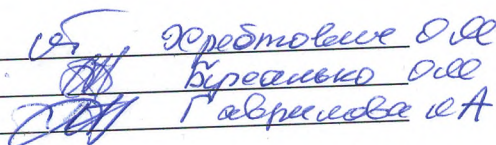 Хребтович ОМ
Бусалько ОМ
Гаврилова И А